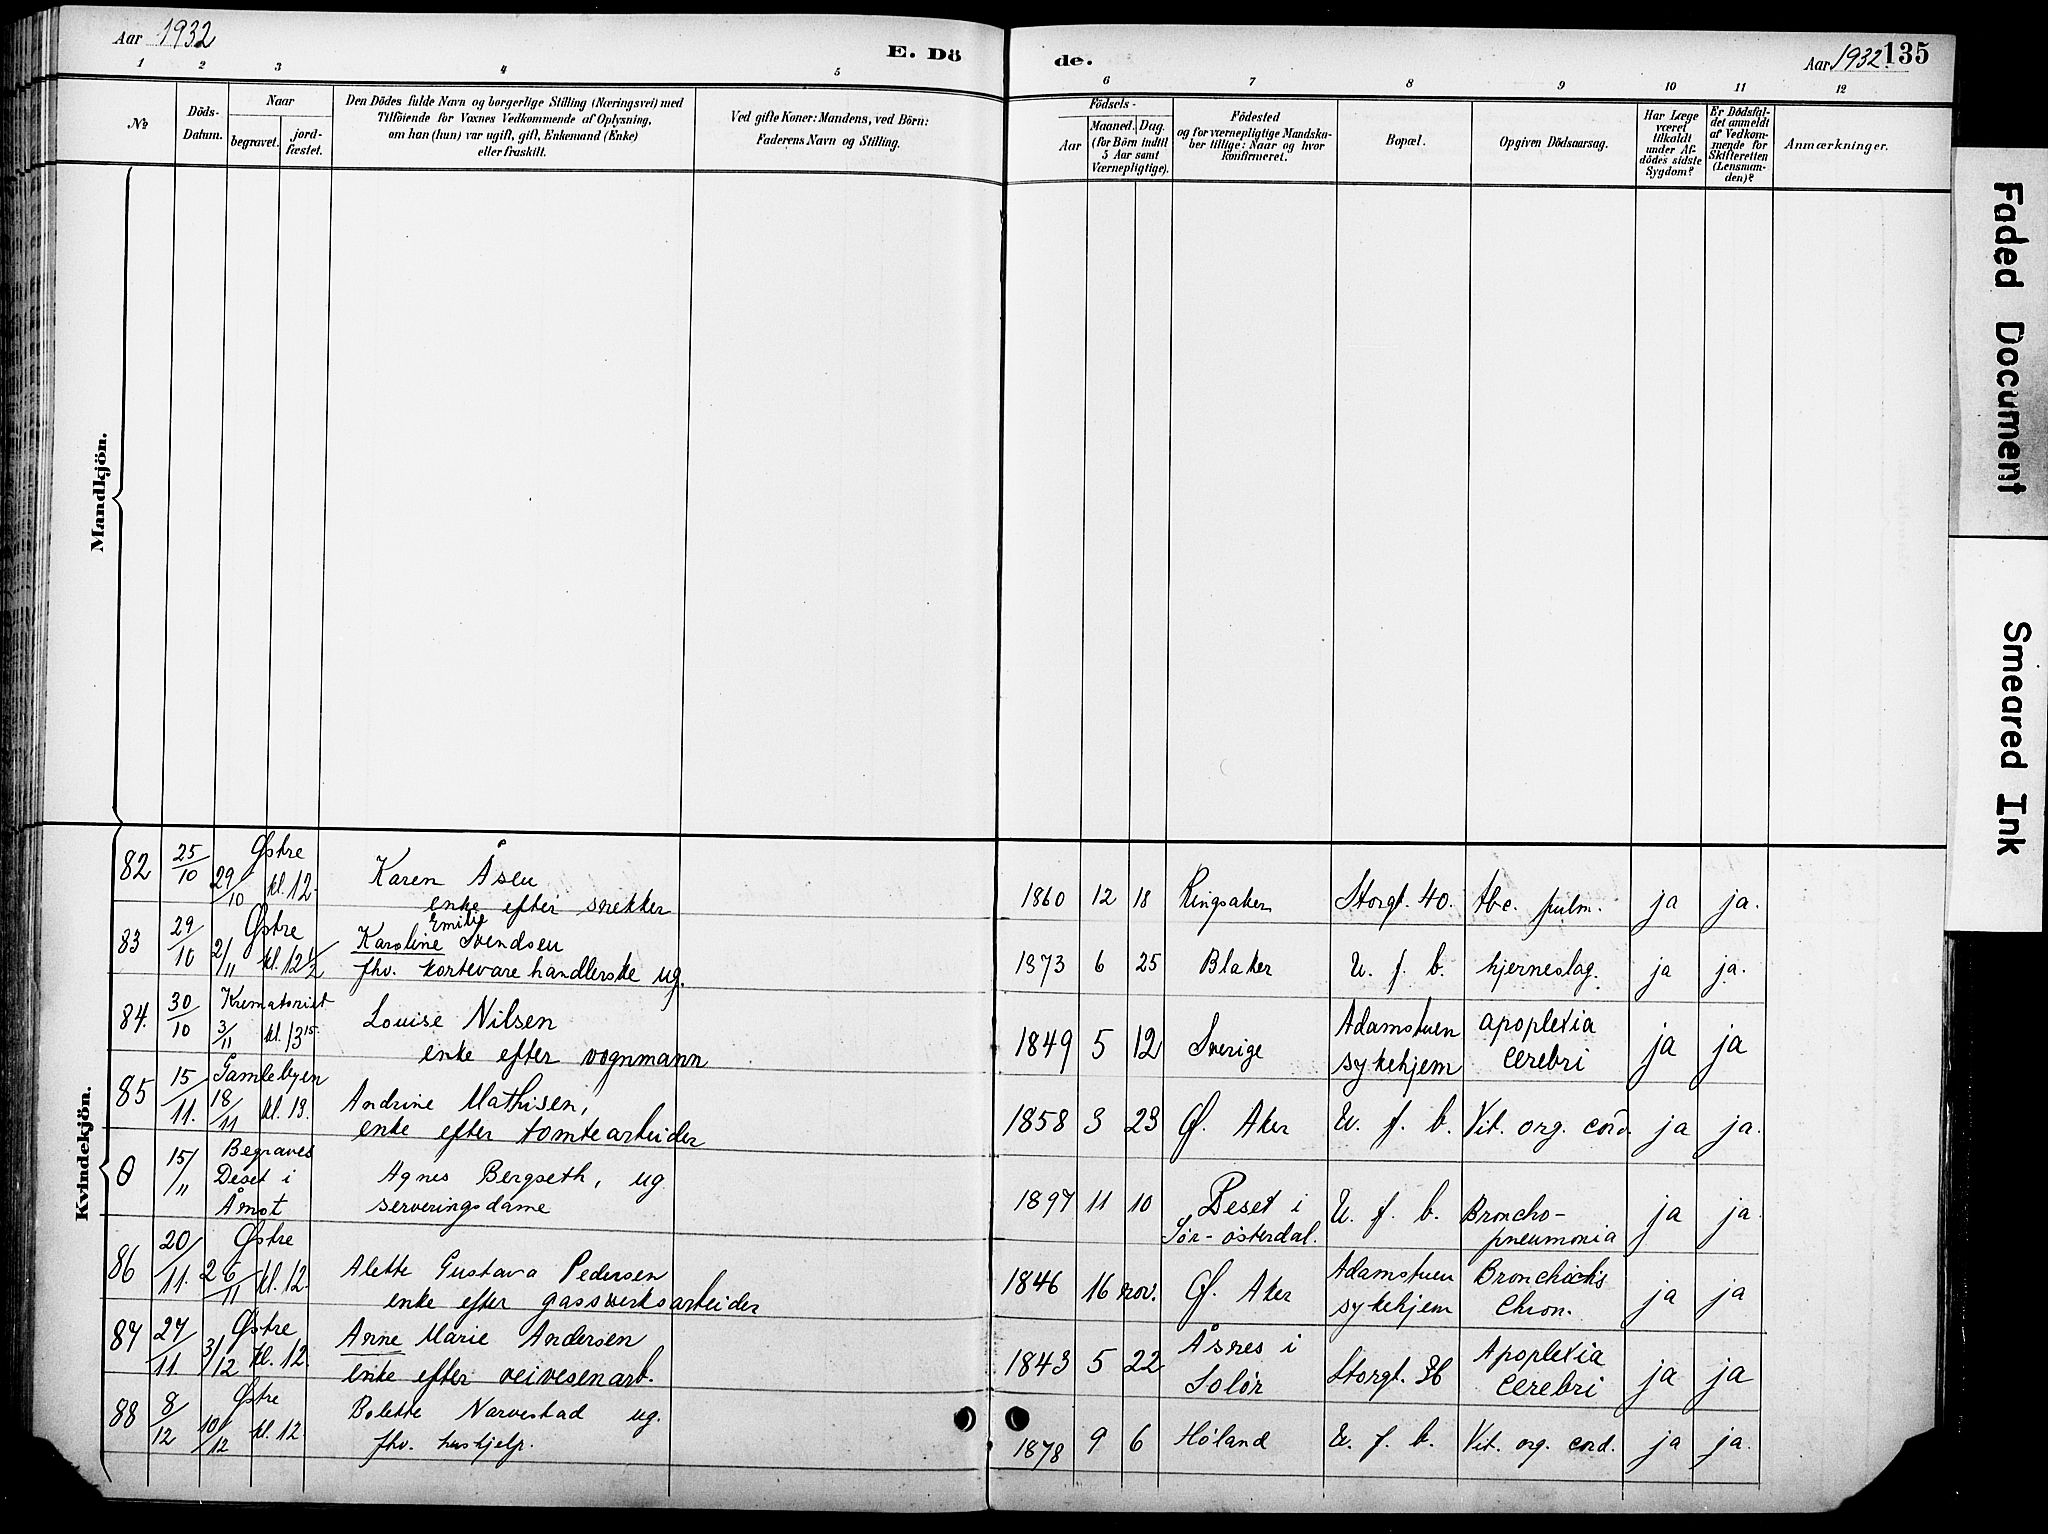 Aar 1932
E. Dö
de.
Aar 1932. 135
1 2 3 4 5 6 7 8 9 10 11 12
№
Döds-
Datum.
Naar
begravet.
jord-
fæstet.
Den Dödes fulde Navn og borgerlige Stilling (Næringsvei) med
Tilföiende for Voxnes Vedkommende af Oplysning,
om han (hun) var ugift, gift, Enkemand (Enke)
eller fraskilt.
Ved gifte Koner: Mandens, ved Börn:
Faderens Navn og Stilling.
Födsels-
Aar
Maaned. Dag.
(for Börn indtil
5 Aar samt
Værnepligtige).
Födested
og for værnepligtige Mandska-
ber tillige: Naar og hvor
konfirmeret.
Bopæl.
Opgiven Dödsaarsag.
Har Læge
været
tilkaldt
under Af-
dödes sidste
Sygdom?
Er Dödsfal-
det anmeldt
af Vedkom-
mende for
Skifteretten
(Lensman-
den)?
Anmærkninger.
Mandkjön.
Kvindekjön.
82 25/10 Østre 29/10 kl. 12 Karen Åsen
enke efter snekker
1860 12 18 Ringsaker Storgt. 40. Tbc. pulm. ja ja.
83 29/10 Østre 2/11 kl. 12 1/2 Karoline Emilie Svendsen
fhv. kortevarehandlerske ug.
1873 6 25 Blaker U. f. b. hjerneslag. ja ja.
84. 30/10 Krematoriet 3/11 kl. 13 15 Louise Nilsen
enke efter vognmann
1849 5 12 Sverige Adamstuen sykehjem apoplexia cerebri ja ja
85 15/11. Gamlebyen 18/11 kl. 13. Andrine Mathisen,
enke efter tomtearbeider
1858 3 23 Ø. Aker U. f. b. Vit. org. cord. ja ja.
0 15/11 Begraves Deset i Åmot Agnes Bergseth, ug
serveringsdame
1897 11 10 Deset i Sør-österdal. U. f. b. Broncho-pneumonia ja ja
86 20/11. Østre 26/11 kl. 12. Alette Gustava Pedersen
enke efter gassverksarbeider
1846 16 nov. Ø. Aker Adamstuen sykehjem Bronchitis Chron. ja ja
87 27/11. Østre 3/12 kl. 12. Anne Marie Andersen
enke efter veivesenarb.
1843 5 22 Åsnes i Solør Storgt. Apoplexia cerebri ja ja
88 8/12 Østre 10/12 kl. 12. Bolette Narvestad ug.
fhv. hushjelp.
1878 9 6 Høland U. f. b. Vit. org. cord. ja ja.
Faded Document
Smeared Ink